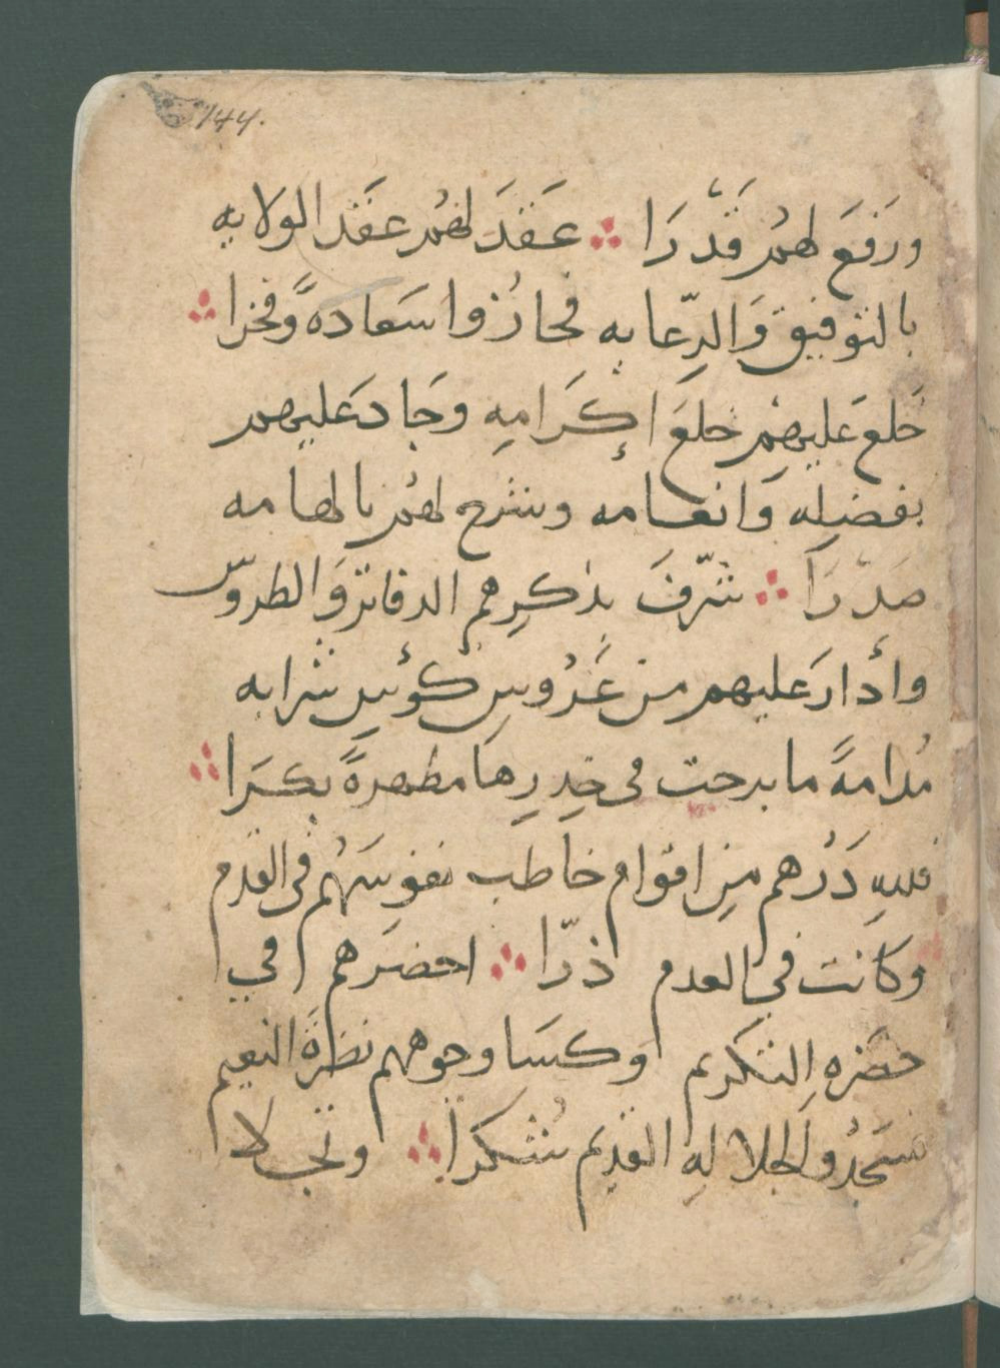 144.
ورَفَعَ لهُم قَدْرَا ∴ عَقَدَ لهُم عقَد الولايه
بالتوفيق وَالرِّعايه فحازُوا سَعادةً وفخرا ∴
خَلع عَليهِم خلعَ إكرَامِه وجَاد عَليهم
بفضلِه وَانعامه وشرح لهُم بالهامه
صَدْرَا ∴ شرّفَ بذكرِهم الدفاتر وَالطروس
وأدارَ عليهم من عَرُوسِ كؤسِ شرابه
مُدامةً ما برحت في خِدرِها مطهرةً بكرَا ∴
فللهِ دَرُهم مِن اقوام خاطب نفوسَهُم في القدم
وكانت في العدم ذرّا ∴ احضرهم في
حضَره التكريم وكسَا وجوههم نظرَةَ النعيم
فسَجدُوا لجلالهِ القديم شُكرا ∴ وتجلا